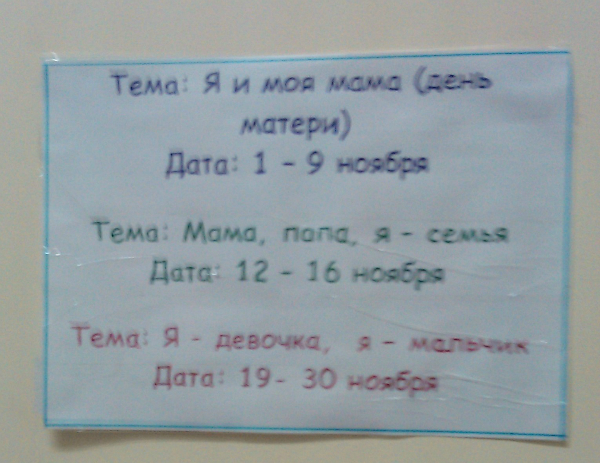 Тема: Я и моя мама (день
матери)
Дата: 1 - 9 ноября
Тема: Мама, папа, я - семья
Дата: 12 - 16 ноября
Тема: Я - девочка, я - мальчик
Дата: 19- 30 ноября